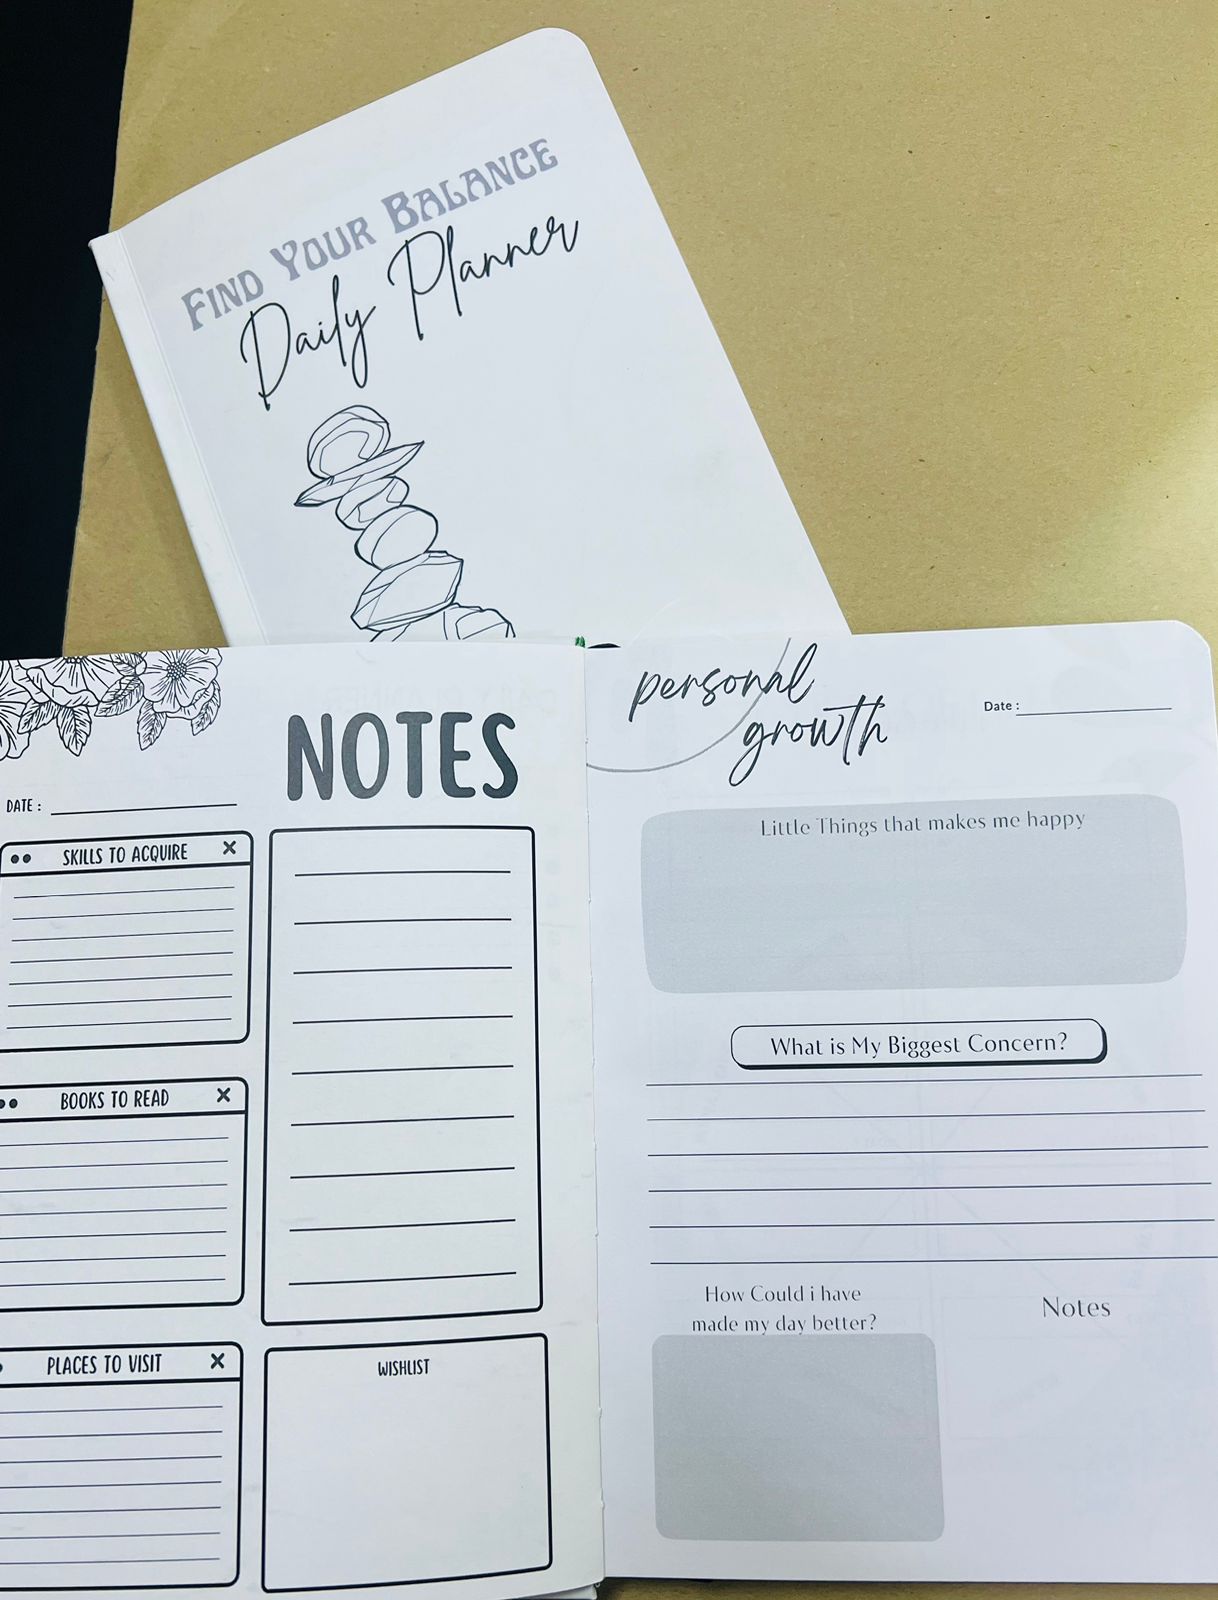 FIND YOUR BALANCE
Daily Planner
NOTES
DATE :
SKILLS TO ACQUIRE
BOOKS TO READ
PLACES TO VISIT
WISHLIST
personal
growth
Date :
Little Things that makes me happy
What is My Biggest Concern?
How Could i have
made my day better?
Notes